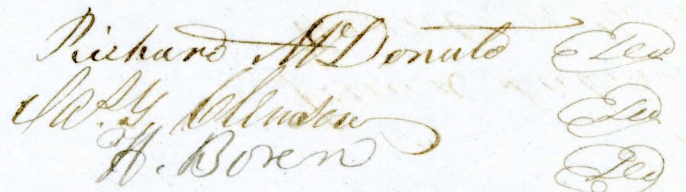 Richard McDonald Seal
Jas. Y. Clemson Seal
H. Boren Seal